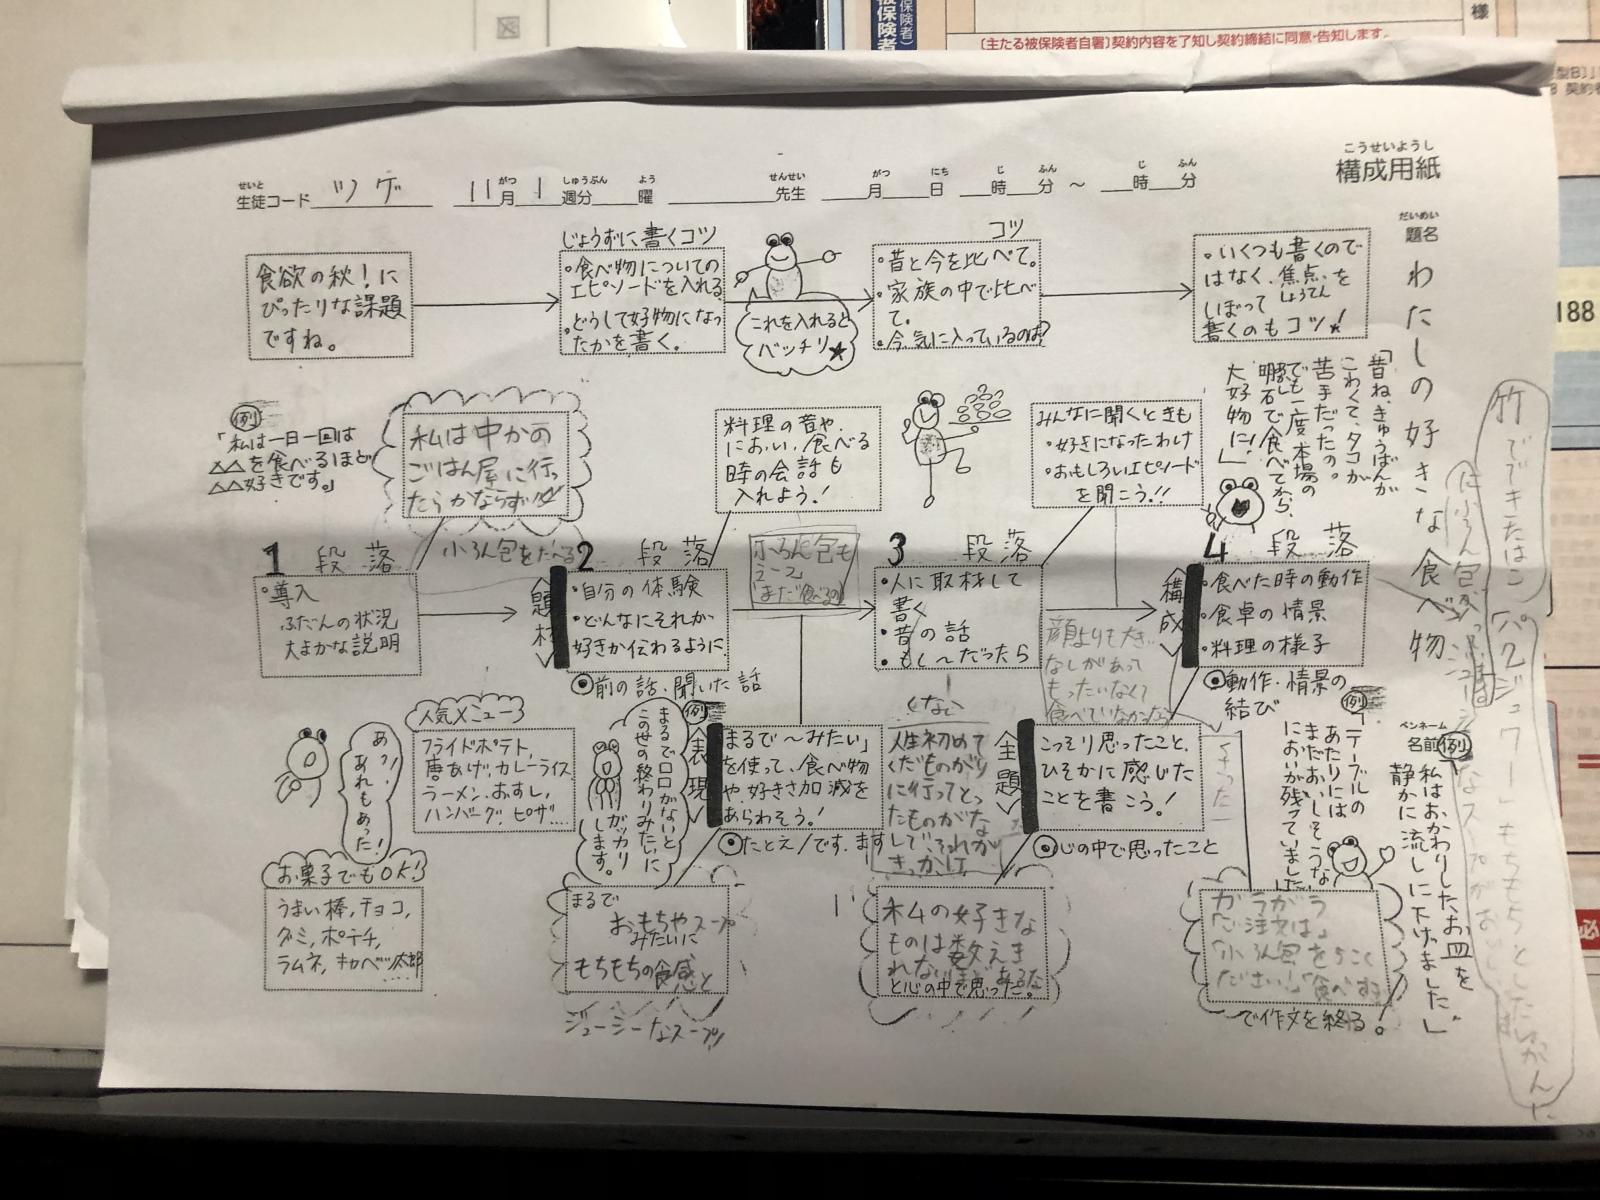 様
〔主たる被保険者自署〕契約内容を了知し契約締結に同意・告知します。
188
こうせいようし
構成用紙
せいと がつ しゅうぶん よう せんせい がつ にち じ ふん じ ふん
生徒コード ツゲ 11月1週分 曜 先生 月 日 時 分 ~ 時 分
だいめい
題名
わたしの好きな食べ物
ペンネーム
名前
食欲の秋!に
ぴったりな課題
ですね。
じょうずに書くコツ
・食べ物についての
エピソードを入れる
・どうして好物になっ
たかを書く。
これを入れると
バッチリ★
コツ
・昔と今を比べて。
・家族の中で比べ
て。
・今気に入っているのは?
・いくつも書くので
はなく、焦点を
しょうてん
しぼって
書くのもコツ!
例
「私は一日一回は
△△を食べるほど
△△好きです。」
私は中かの
ごはん屋に行っ
たらかならず
小ろん包をたべる
料理の音や、
におい、食べる
時の会話も
入れよう!
みんなに聞くときも
・好きになったわけ
・おもしろいエピソード
を聞こう!!
「昔ね、きゅうばんが
こわくて、タコが
苦手だったの。
でも一度本場の
明石で食べてから、
大好物に!」
1 段落
・導入
ふだんの状況
大まかな説明
<題材>
2 段落
・自分の体験
・どんなにそれが
好きか伝わるように
◎前の話、聞いた話
小ろん包も
えーっ
まだ食べるの
3 段落
・人に取材して
書く
・昔の話
・もし〜だったら
顔よりも大き
なしがあって
もったいなくて
食べていなかったら
<構成>
4 段落
・食べた時の動作
・食卓の情景
・料理の様子
◎動作・情景の
結び
例
テーブルの
あたりには
まだおいしそうな
においが残っていました
例
私はおかわりしたお皿を
静かに流しに下げました。」
あっ!
あれもあった!
人気メニュー
フライドポテト、
唐あげ、カレーライス
ラーメン、おすし、
ハンバーグ、ピザ…
お菓子でもOK!
うまい棒、チョコ、
グミ、ポテチ、
ラムネ、キャベツ太郎
例
まるで□□がないと
この世の終わりみたいに
ガッカリ
します。
<表現>
「まるで〜みたい」
を使って、食べ物
や、好きさ加減を
あらわそう!
◎たとえ/です.ます
まるで
おもちやスープ
みたいに
もちもちの食感と
ジューシーなスープ
人生初めて
くだものがり
に行ってとっ
たものがな
しで、それが
きっかけ
<主題>
こっそり思ったこと、
ひそかに感じた
ことを書こう!
◎心の中で思ったこと
私の好きな
ものは数えき
れないほどあるな
と心の中で思った。
「ご注文は」
「小ろん包を5こく
ださい」
で作文を終る。
竹でできたはこ
に小ろん包が
「パクジュワー」もちもちとしたしょっかんに